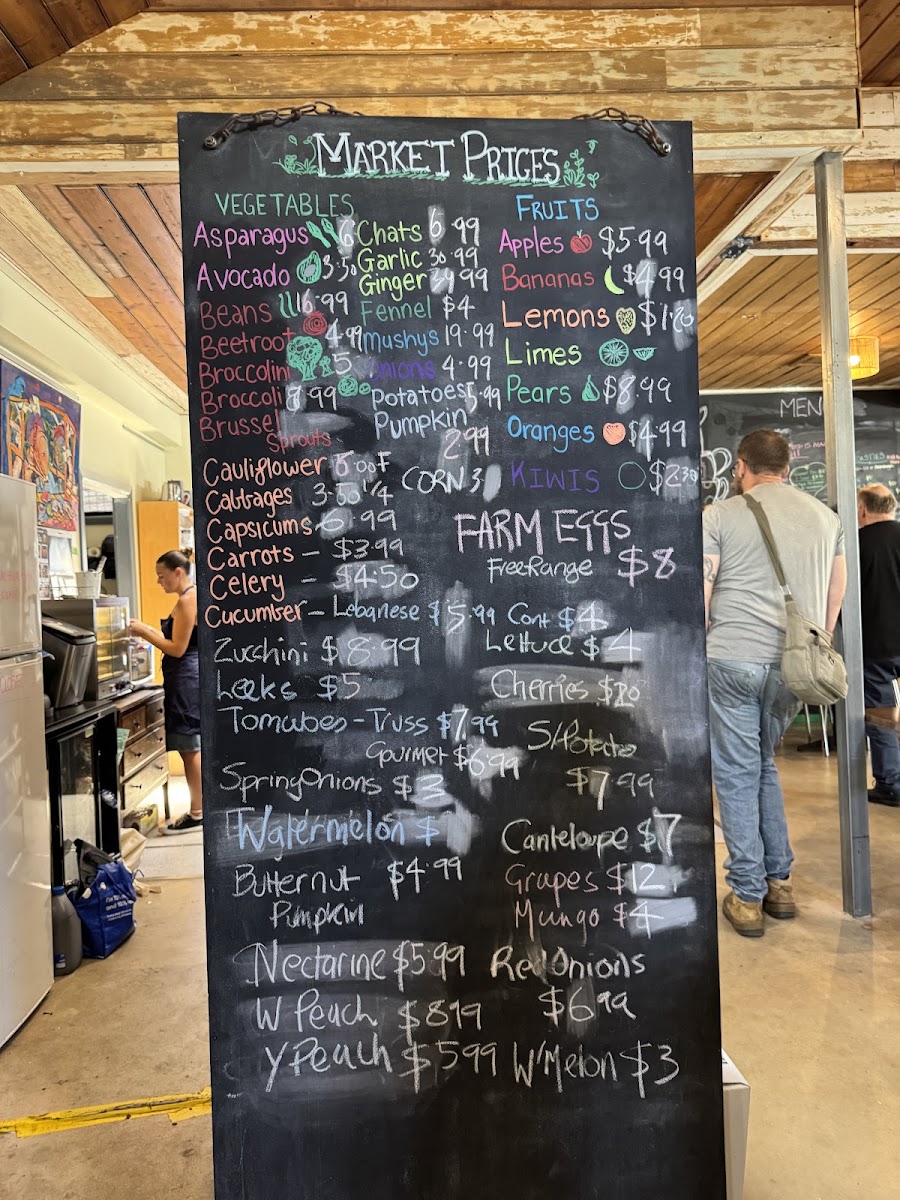 MARKET PRICES
VEGETABLES
Asparagus 6
Avocado 3.50
Beans 16.99
Beetroot 4.99
Broccolini 5
Broccoli 8.99
Brussel
Sprouts
Chats 6.99
Garlic 30.99
Ginger 39.99
Fennel $4
Mushys 19.99
Onions 4.99
Potatoes 5.99
Pumpkin
2.99
FRUITS
Apples $5.99
Bananas $4.99
Lemons $1.20
Limes
Pears $8.99
Oranges $4.99
KIWIS $2.30
Cauliflower
Cabbages 3.50 1/4
CORN 3
Capsicums 6.99
Carrots - $3.99
Celery - $4.50
Cucumber - Lebanese $5.99 Cont $4
FARM EGGS
Free Range $8
Zucchini $8.99
Lettuce $4
Leeks $5
Cherries $20
Tomatoes - Truss $7.99
Gourmet $6.99
S/Potato
$7.99
Spring Onions $3
Watermelon $
Canteloupe $7
Butternut $4.99
Pumpkin
Grapes $12
Mungo $4
Nectarine $5.99
Red Onions
$6.99
W Peach $8.99
Y Peach $5.99
W/Melon $3
MENU